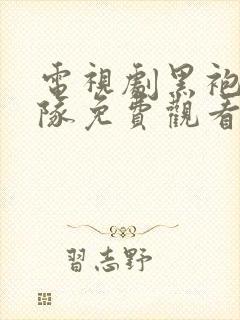 電視劇黑袍
隊免費觀看
習志野